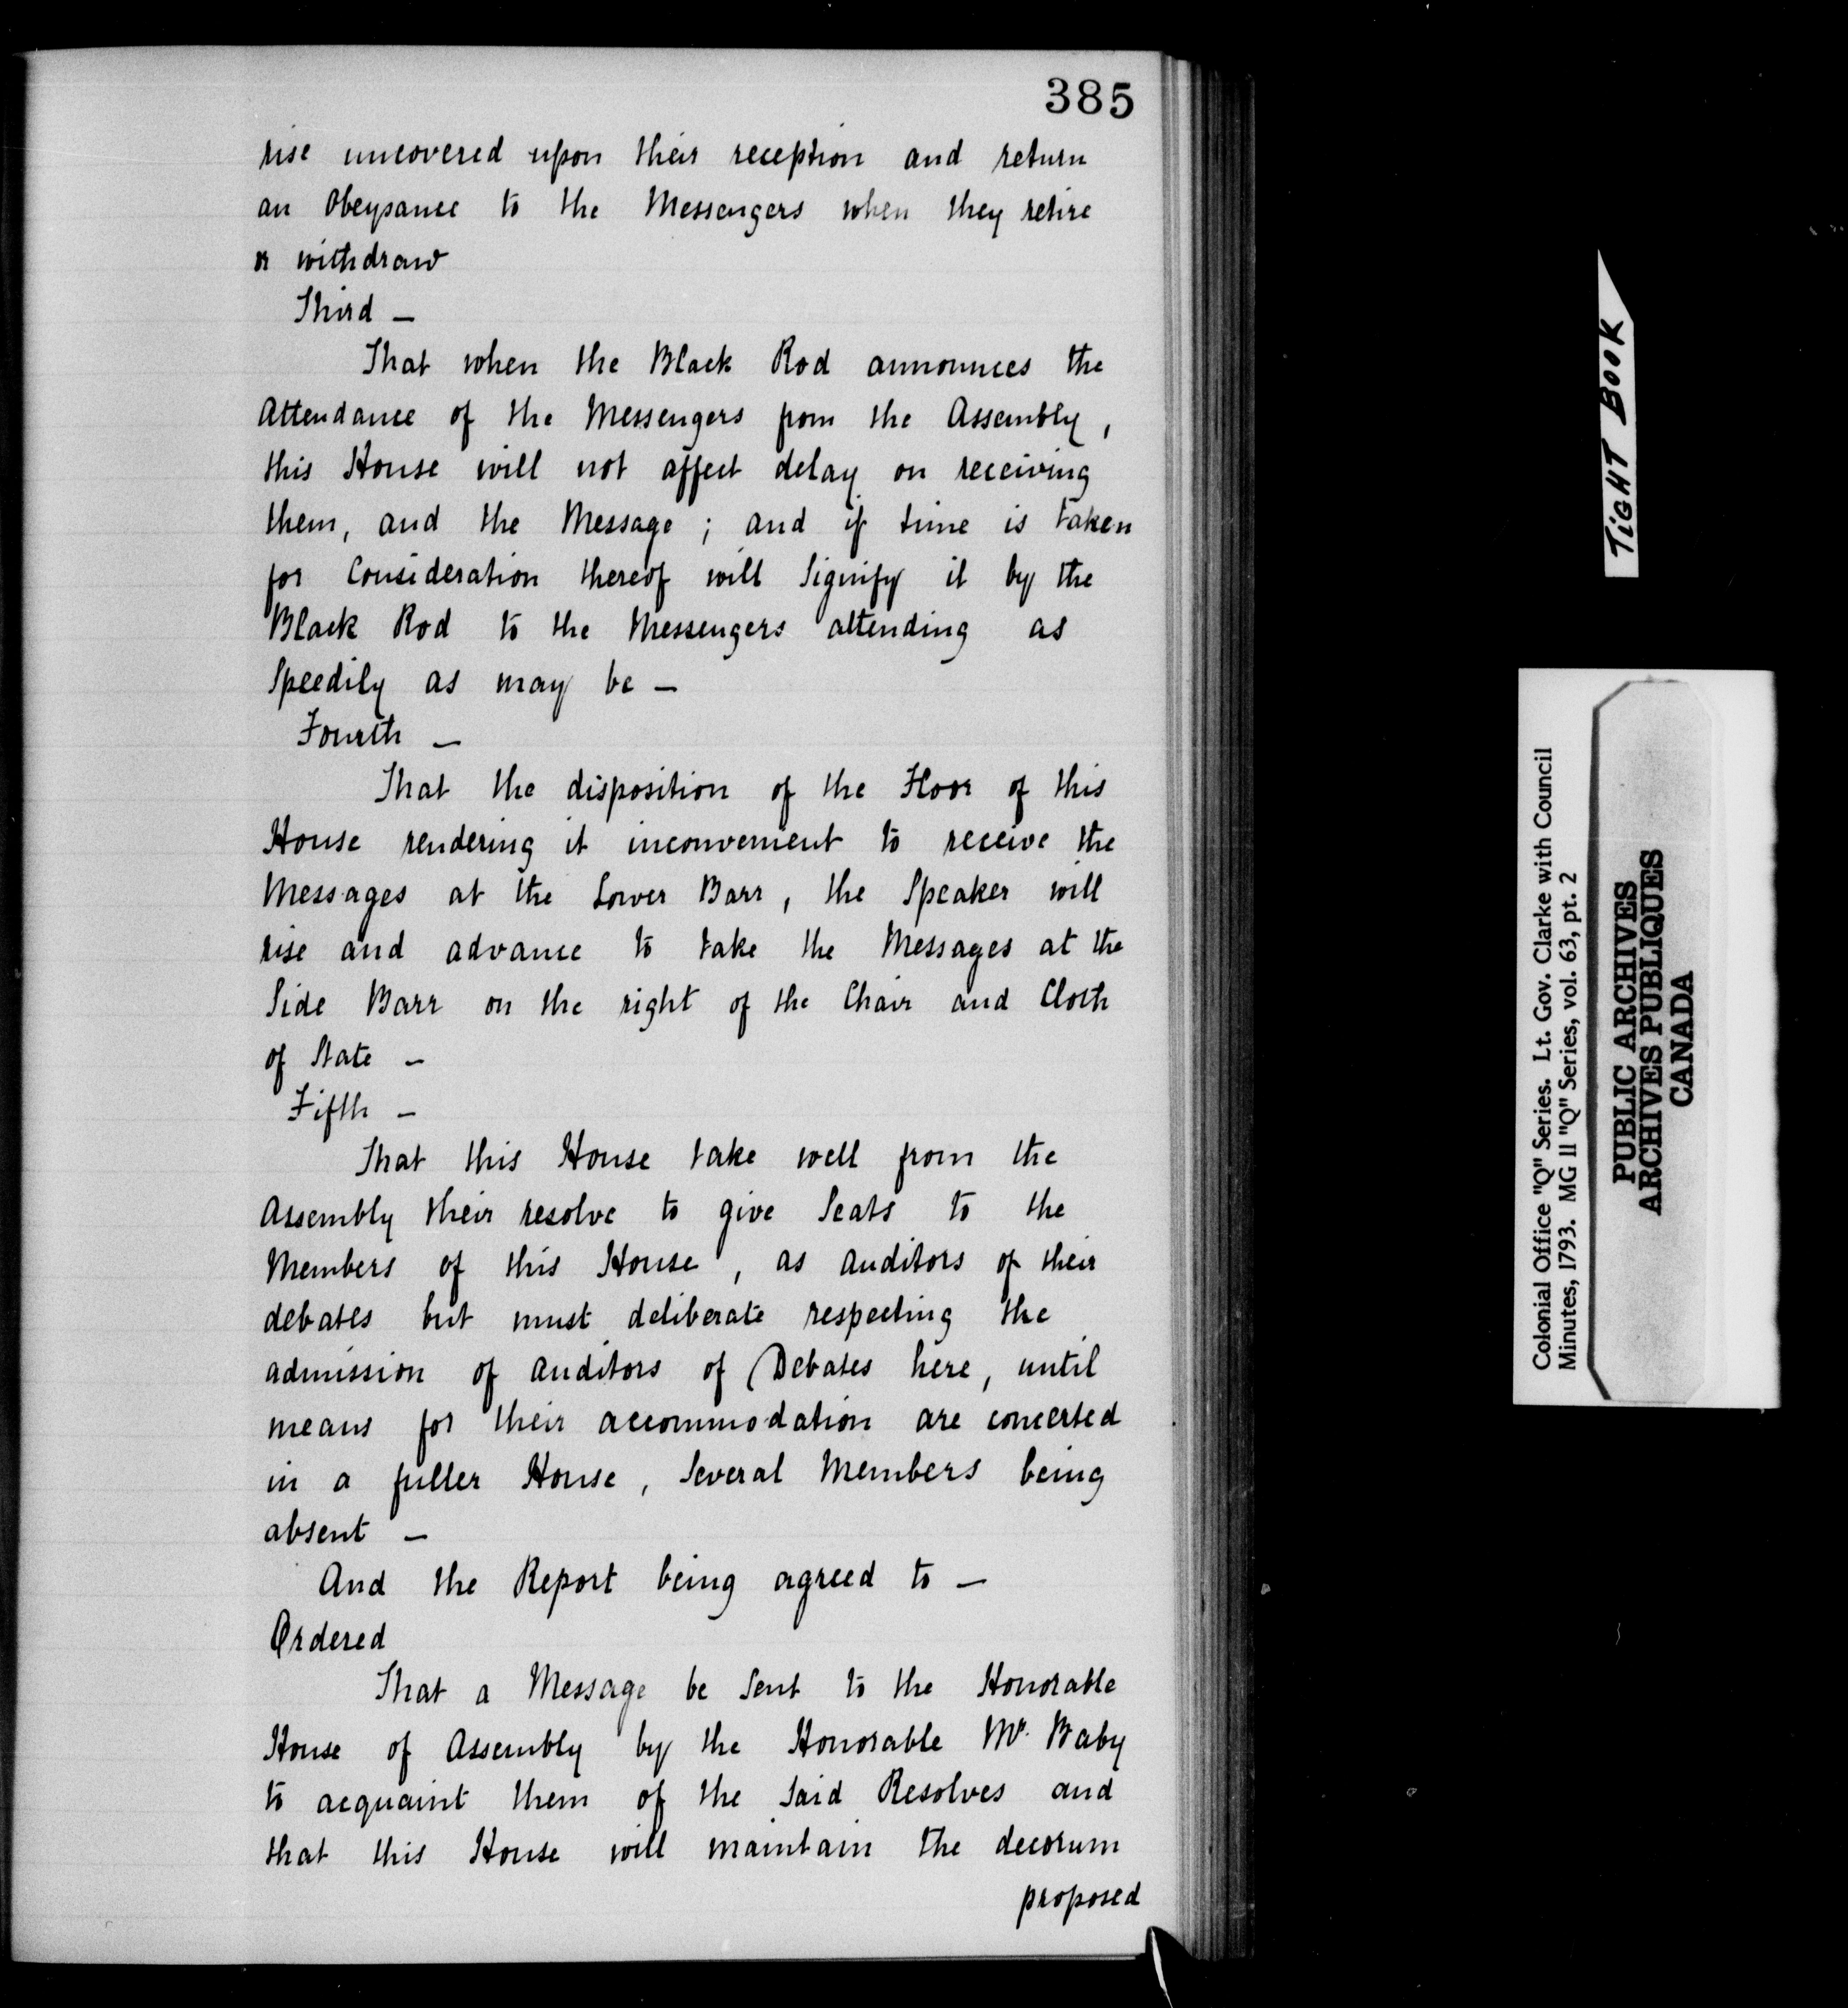 385
rise uncovered upon their reception and return
an Obeysance to the Messengers when they retire
or withdraw
Third —
That when the Black Rod announces the
Attendance of the Messengers from the Assembly,
this House will not affect delay on receiving
them, and the Message; and if time is taken
for Consideration thereof will Signify it by the
Black Rod to the Messengers attending as
Speedily as may be —
Fourth —
That the disposition of the Floor of this
House rendering it inconvenient to receive the
Messages at the Lower Barr, the Speaker will
rise and advance to take the Messages at the
Side Barr on the right of the Chair and Cloth
of State —
Fifth —
That this House take well from the
Assembly their resolve to give Seats to the
Members of this House, as Auditors of their
debates but must deliberate respecting the
admission of Auditors of Debates here, until
means for their accommodation are concerted
in a fuller House, Several Members being
absent —
And the Report being agreed to —
Ordered
That a Message be Sent to the Honorable
House of Assembly by the Honorable Mr. Baby
to acquaint them of the Said Resolves and
that this House will maintain the decorum
proposed
TIGHT BOOK
Colonial Office "Q" Series. Lt. Gov. Clarke with Council
Minutes, 1793. MG 11 "Q" Series, vol. 63, pt. 2
PUBLIC ARCHIVES
ARCHIVES PUBLIQUES
CANADA